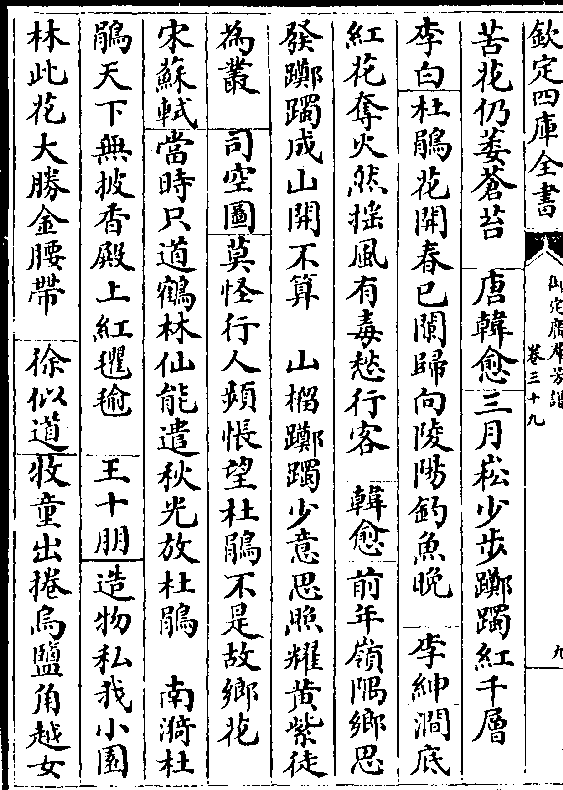 欽定四庫全書
御定廣羣芳譜
卷三十九
九
苦花仍萎蒼苔　唐韓愈三月崧少步躑躅紅千層
李白杜鵑花開春已闌歸向陵陽釣魚晚　李紳澗底
紅花奪火然揺風有毒愁行客　韓愈前年嶺隅鄉思
發躑躅成山開不算　山榴躑躅少意思照耀黄紫徒
為叢　司空圖莫怪行人頻悵望杜鵑不是故鄉花
宋蘇軾當時只道鶴林仙能遣秋光放杜鵑　南漪杜
鵑天下無披香殿上紅氍毹　王十朋造物私我小園
林此花大勝金腰帶　徐似道牧童出捲烏鹽角越女